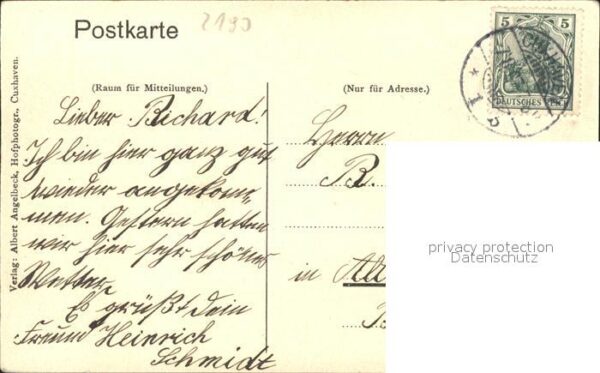 Postkarte
2190
5 5
DEUTSCHES REICH
(Raum für Mitteilungen.)
(Nur für Adresse.)
Lieber Richard!
Ich bin hier ganz gut
wieder angekom=
men. Gestern hatten
wir hier sehr schönes
Wetter.
Es grüßt dein
Freund Heinrich
Schmidt
Herrn
R.
in
Verlag: Albert Angelbeck, Hofphotogr., Cuxhaven.
privacy protection
Datenschutz